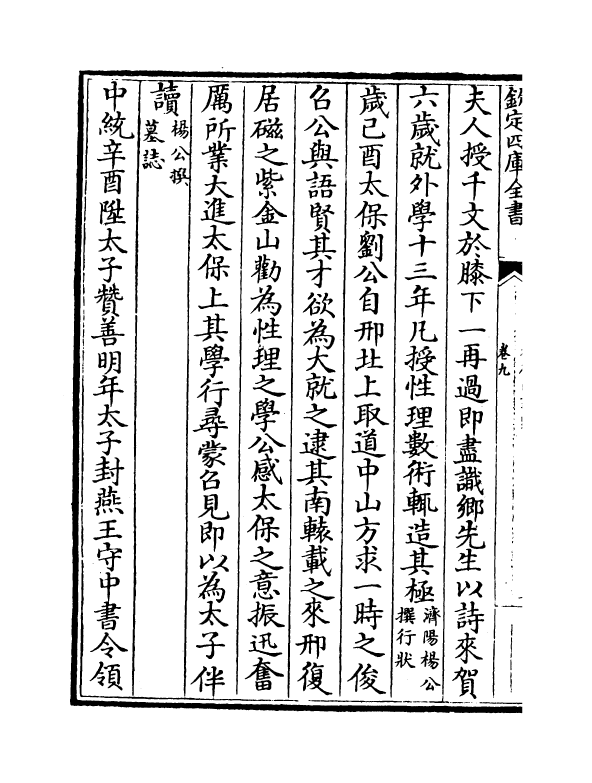 欽定四庫全書
卷九
夫人授千文於膝下一再過即盡識鄉先生以詩來賀
六歲就外學十三年凡授性理數術輒造其極濟陽楊公撰行狀
歲己酉太保劉公自邢北上取道中山方求一時之俊
召公與語賢其才欲為大就之逮其南轅載之來邢復
居磁之紫金山勸為性理之學公感太保之意振迅奮
厲所業大進太保上其學行尋蒙召見即以為太子伴
讀楊公撰墓誌
中統辛酉陞太子贊善明年太子封燕王守中書令領